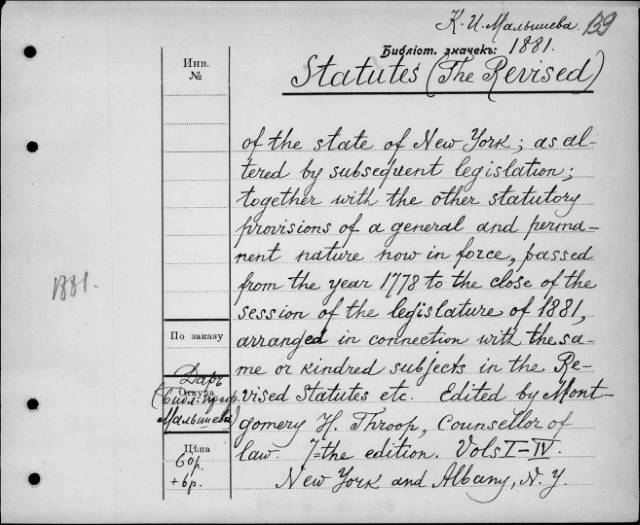 К. И. Малышева. 139
Библіот. значекъ: 1881.
Statutes (The Revised)
Инв.
№
of the state of New York; as al-
tered by subsequent legislation;
together with the other statutory
provisions of a general and perma-
nent nature now in force, passed
from the year 1778 to the close of the
session of the legislature of 1881,
arranged in connection with the sa-
me or kindred subjects in the Re-
vised Statutes etc. Edited by Mont-
gomery H. Throop, Counsellor of
law. 7=the edition. Vols I–IV.
New York and Albany, N. Y.
1881.
По заказу
Даръ
Откуда
(Библ. проф.
Малышева)
Цѣна
60р.
+6р.